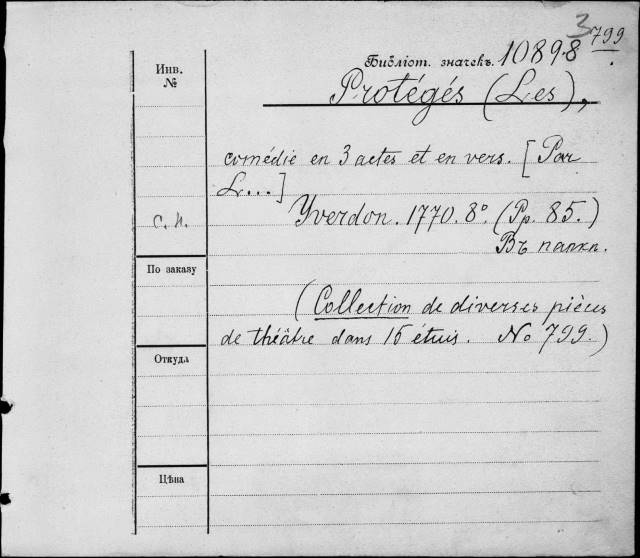 3
799
Библіот. значекъ. 10898
Инв.
№
Protégés (Les),
comédie en 3 actes et en vers. [Par
L...]
Yverdon. 1770. 8°. (Pp. 85.)
Въ папкѣ.
с. п.
По заказу
(Collection de diverses pièces
de théâtre dans 15 étuis. No 799.)
Откуда
Цѣна